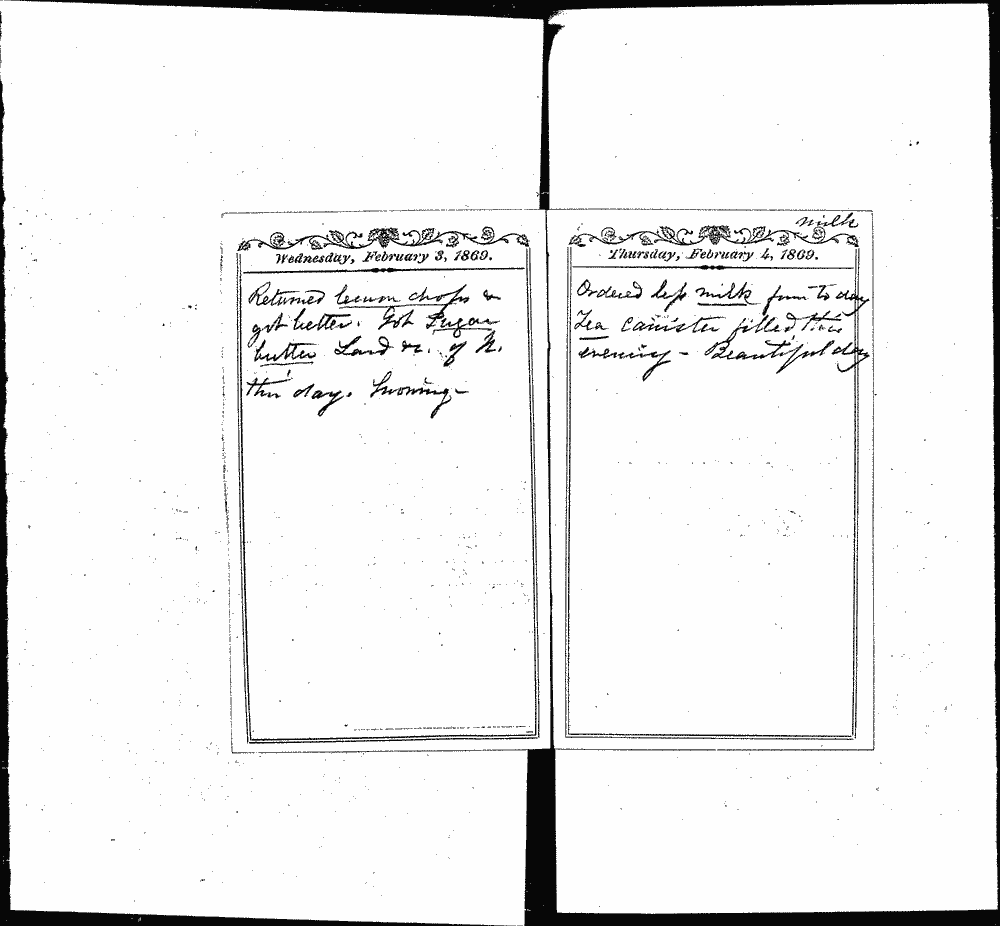 Wednesday, February 3, 1869.
Returned chops &
got better. Got Sugar
butter Lard &c. of N.
this day. Snowing—
milk
Thursday, February 4, 1869.
Ordered less milk from to day
Tea canister filled this
evening – Beautiful day